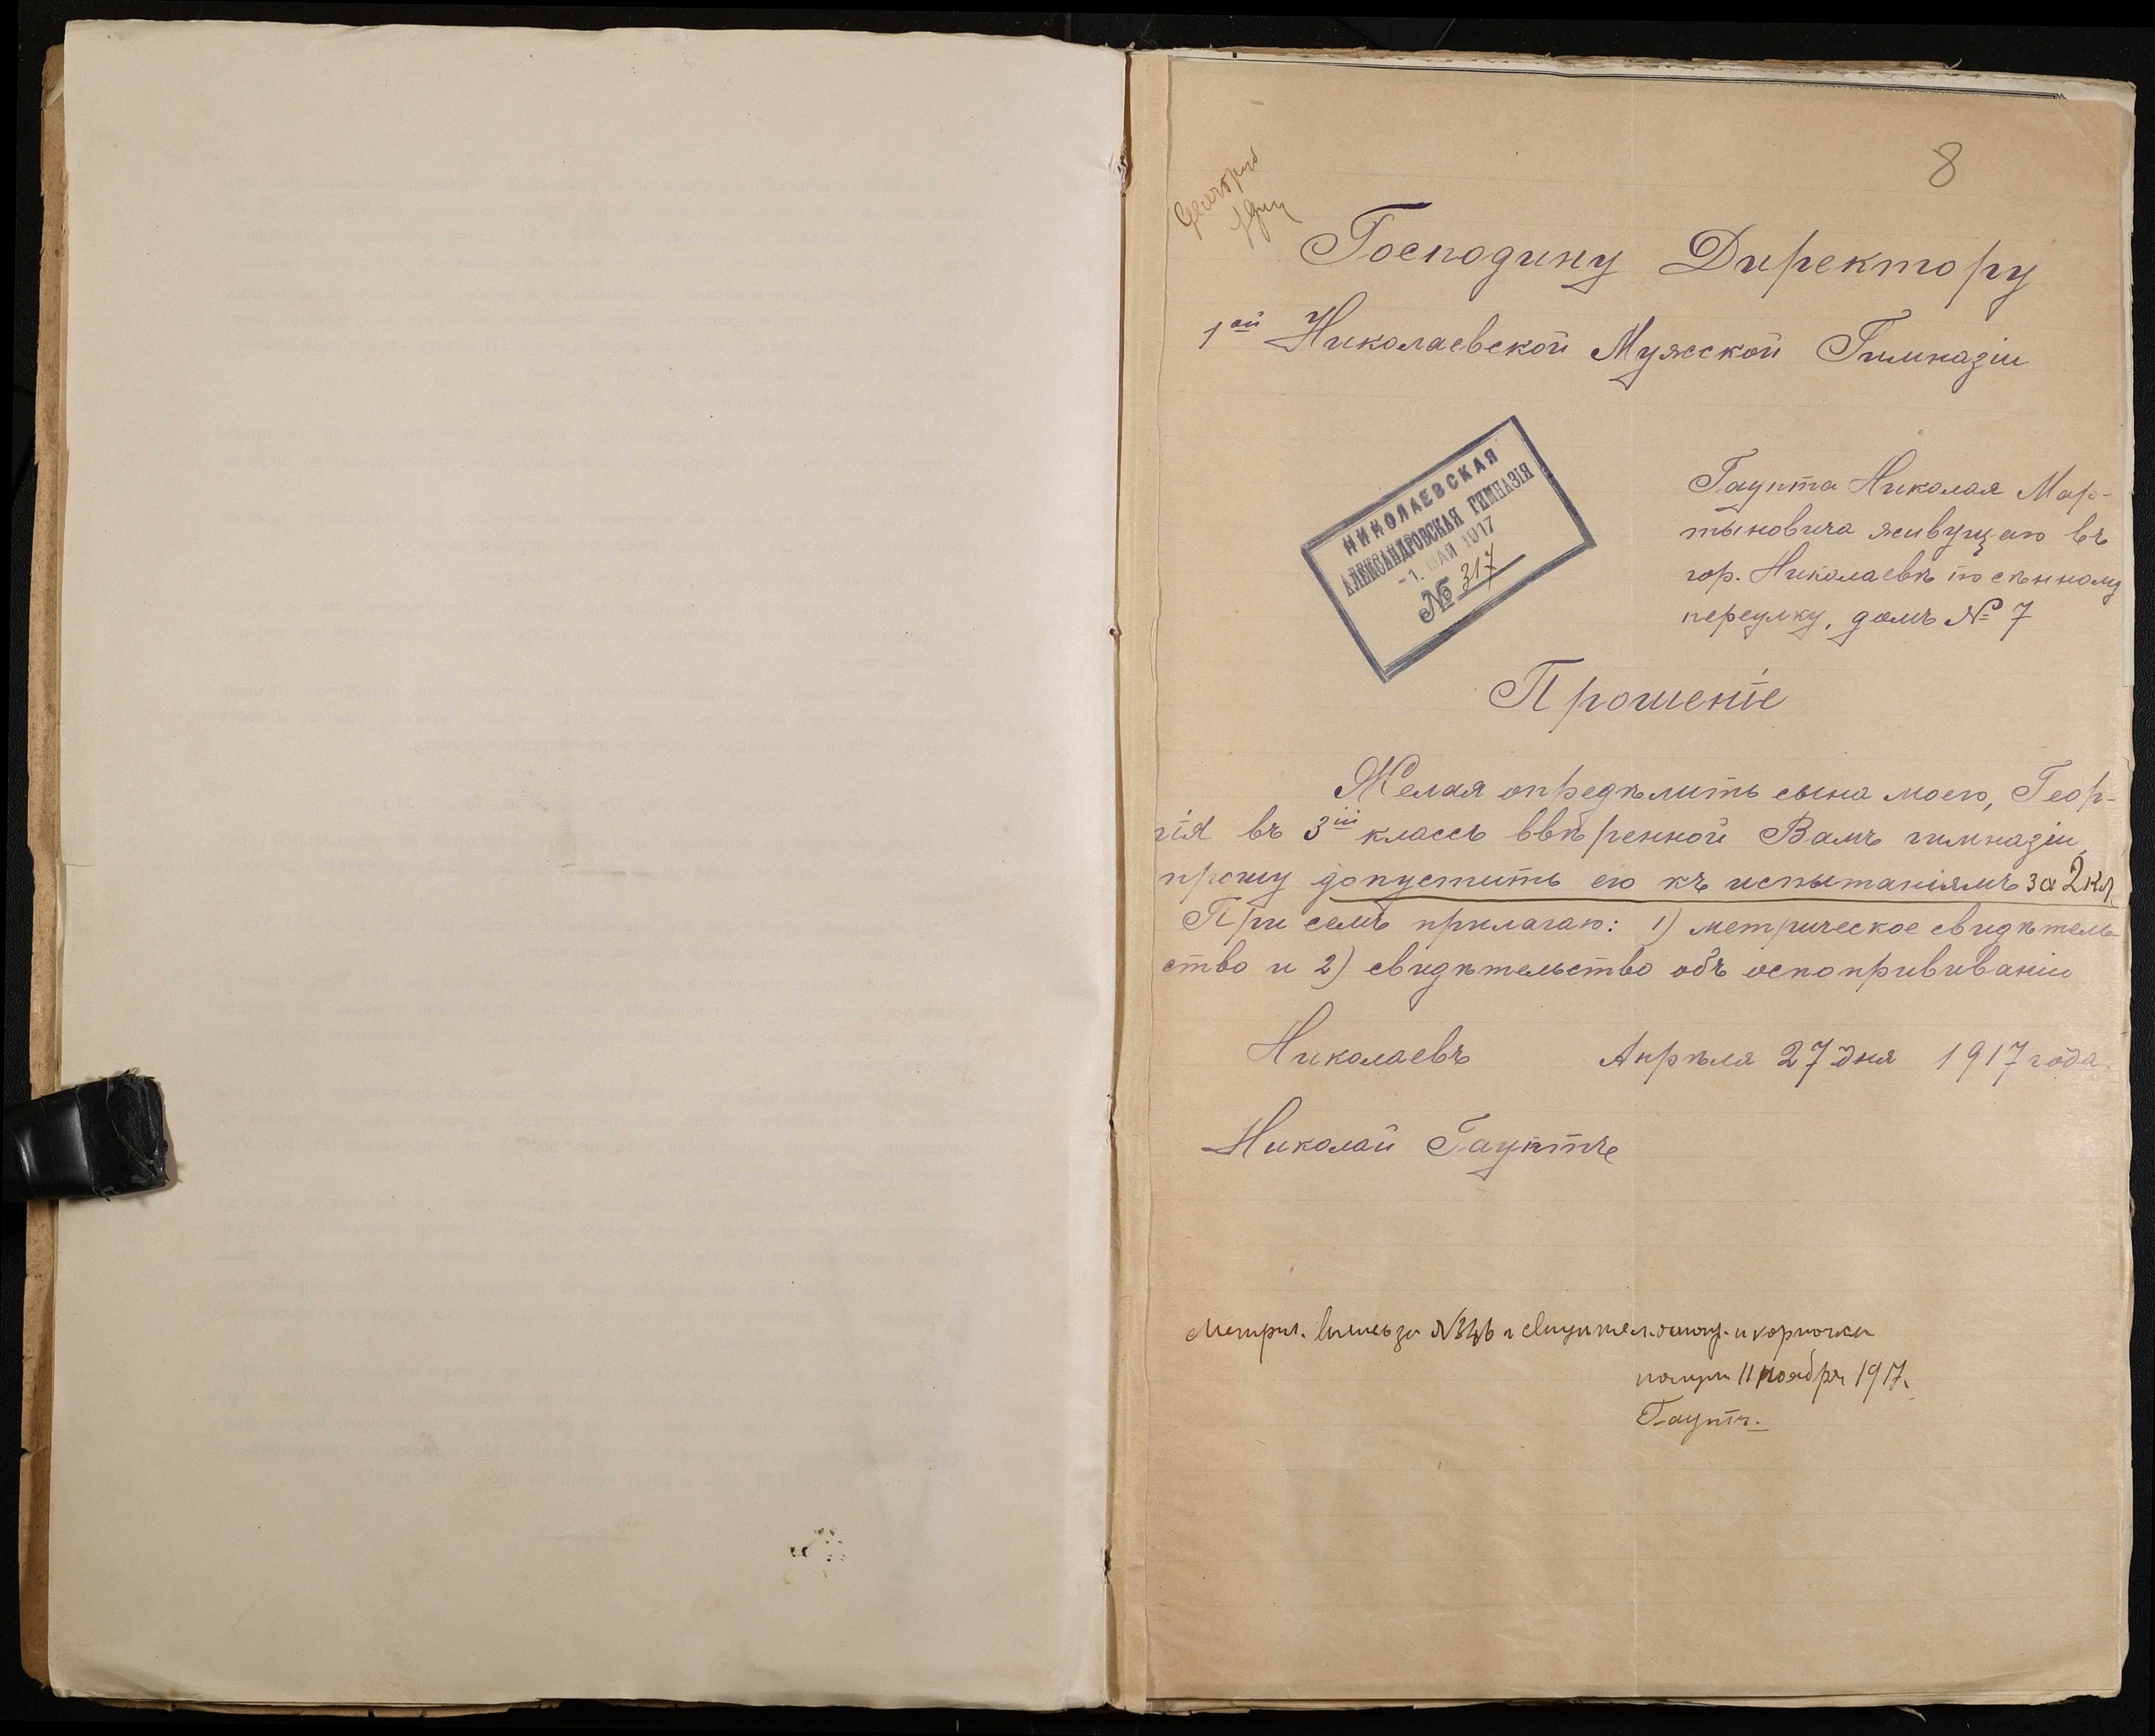 8
Господину Директору
1ой Николаевской Мужской Гимназіи
НИКОЛАЕВСКАЯ
АЛЕКСАНДРОВСКАЯ ГИМНАЗІЯ
-1. МАЙ 1917
№ 317
Гаупта Николая Мар-
тыновича живущаго въ
гор. Николаевѣ по сѣнному
переулку, домъ № 7
Прошеніе
Желая опредѣлить сына моего, Геор-
гія въ 3ій классъ ввѣренной Вамъ гимназіи,
прошу допустить его къ испытаніямъ за 2 кл.
При семъ прилагаю: 1) метрическое свидѣтель-
ство и 2) свидѣтельство объ оспопрививаніи
Николаевъ Апрѣля 27 дня 1917 года.
Николай Гауптъ
Метрич. за № и
11 ноября 1917.
Гауптъ.